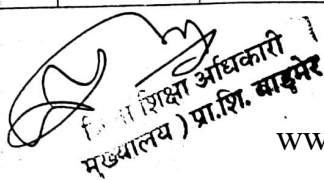 शिक्षा अधिकारी
मुख्यालय ) प्रा.शि. बाड़मेर
ww